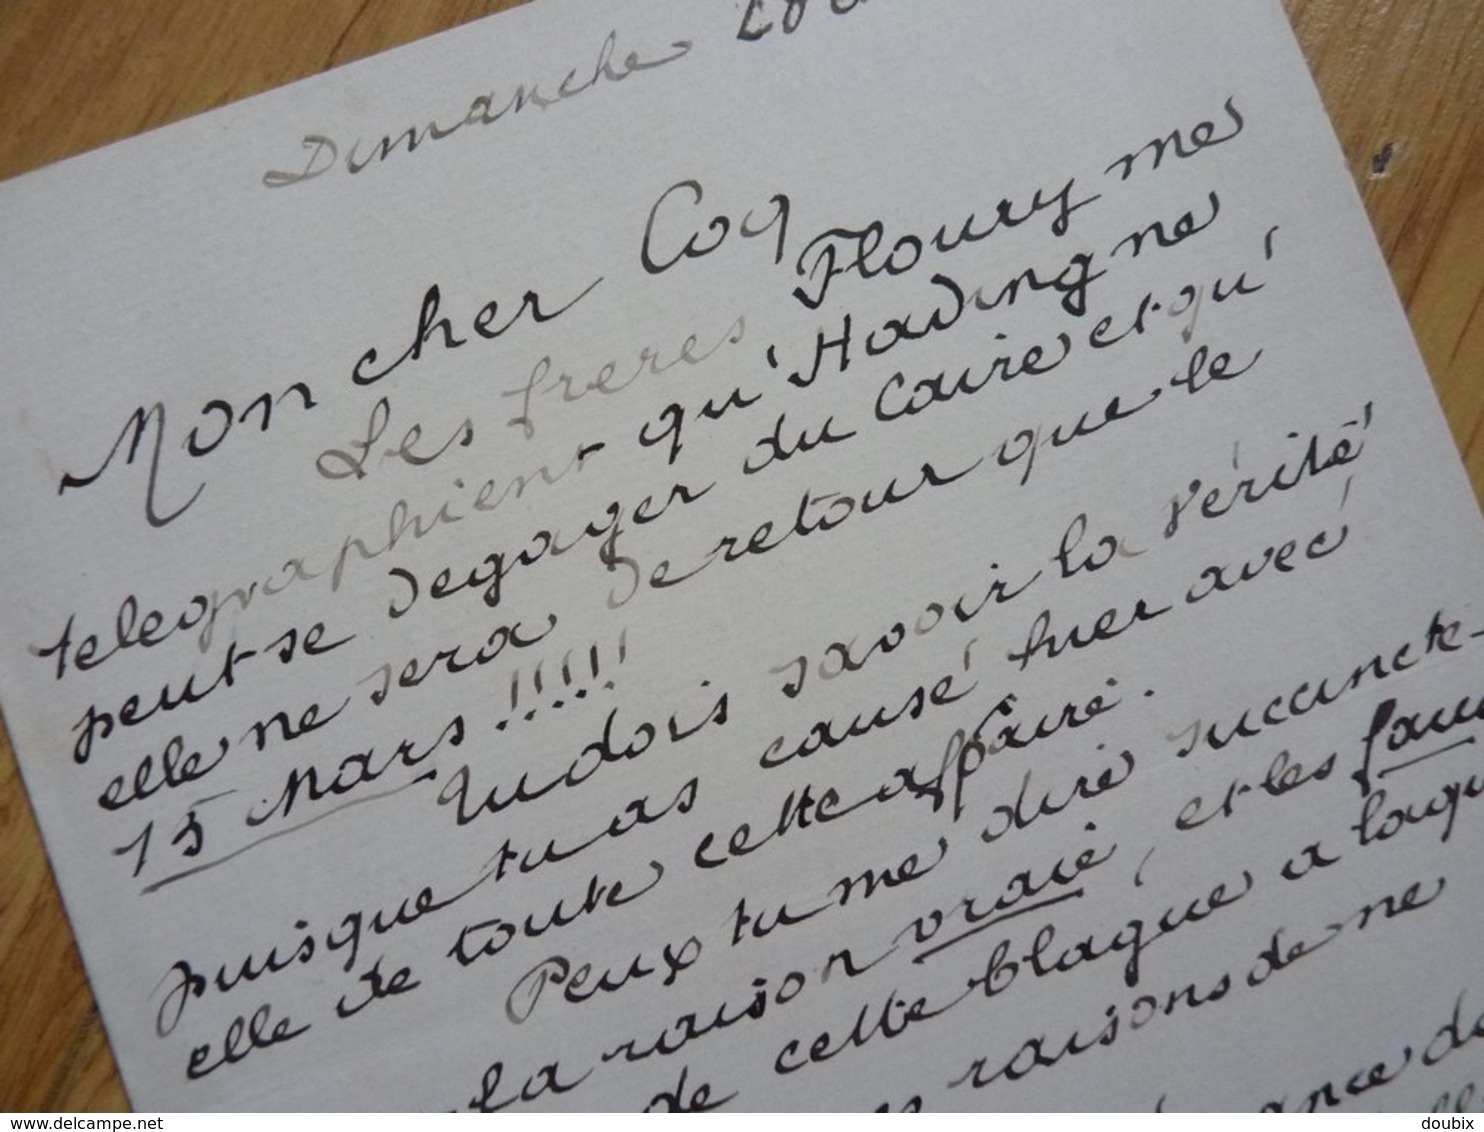 Dimanche
Mon cher Coq
Les freres Floury me
telegraphient qu'Hading ne
peut se degager du Caire et qu'
elle ne sera de retour que le
15 Mars !!!!!
Tu dois savoir la vérité
puisque tu as causé hier avec
elle de toute cette affaire.
Peux tu me dire succincte-
la raison vraie, et les
de cette blague a
raisons de ne
www.delcampe.net
doubix